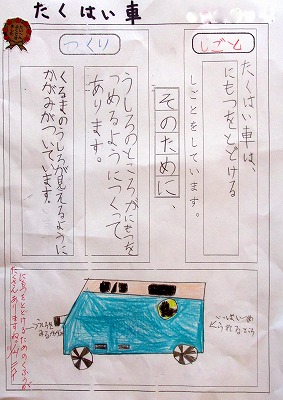 たくはい車
しごと
たくはい車は、
にもつをとどける
しごとをしています。
そのために、
つくり
うしろのところがにもつを
つめるようにつくって
あります。
くるまのうしろが見えるように
かがみがついています。
いっぱいつめ
こられるところ
うしろを
見るかがみ
にもつをとどけるためのくふうが
たくさんありますね。